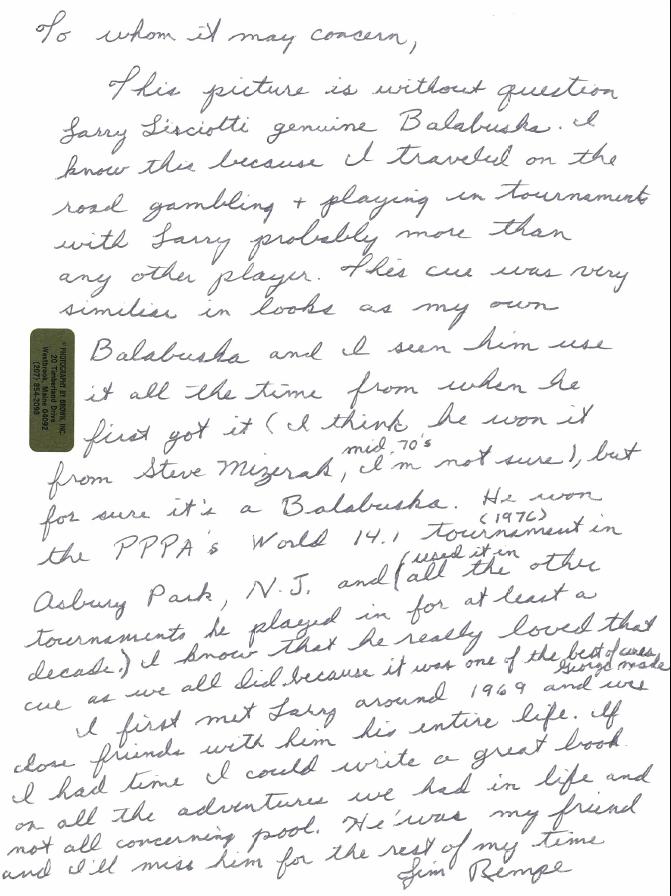 To whom it may concern,
This picture is without question
Larry Lisciotti genuine Balabuska. I
know this because I traveled on the
road gambling + playing in tournaments
with Larry probably more than
any other player. This cue was very
similiar in looks as my own
Balabuska and I seen him use
it all the time from when he
first got it (I think he won it
mid. 70's
from Steve Mizerak, I'm not sure), but
for sure it's a Balabuska. He won
(1976)
the PPPA's World 14.1 tournament in
(used it in
Asbury Park, N.J. and all the other
tournaments he played in for at least a
decade.) I know that he really loved that
cue as we all did because it was one of the best of cues
George made
I first met Larry around 1969 and was
close friends with him his entire life. If
I had time I could write a great book
on all the adventures we had in life and
not all concerning pool. He was my friend
and I'll miss him for the rest of my time
Jim Rempe
PHOTOGRAPHY BY BROWN, INC.
20 Timberland Drive
Westbrook, Maine 04092
(207) 854-2098